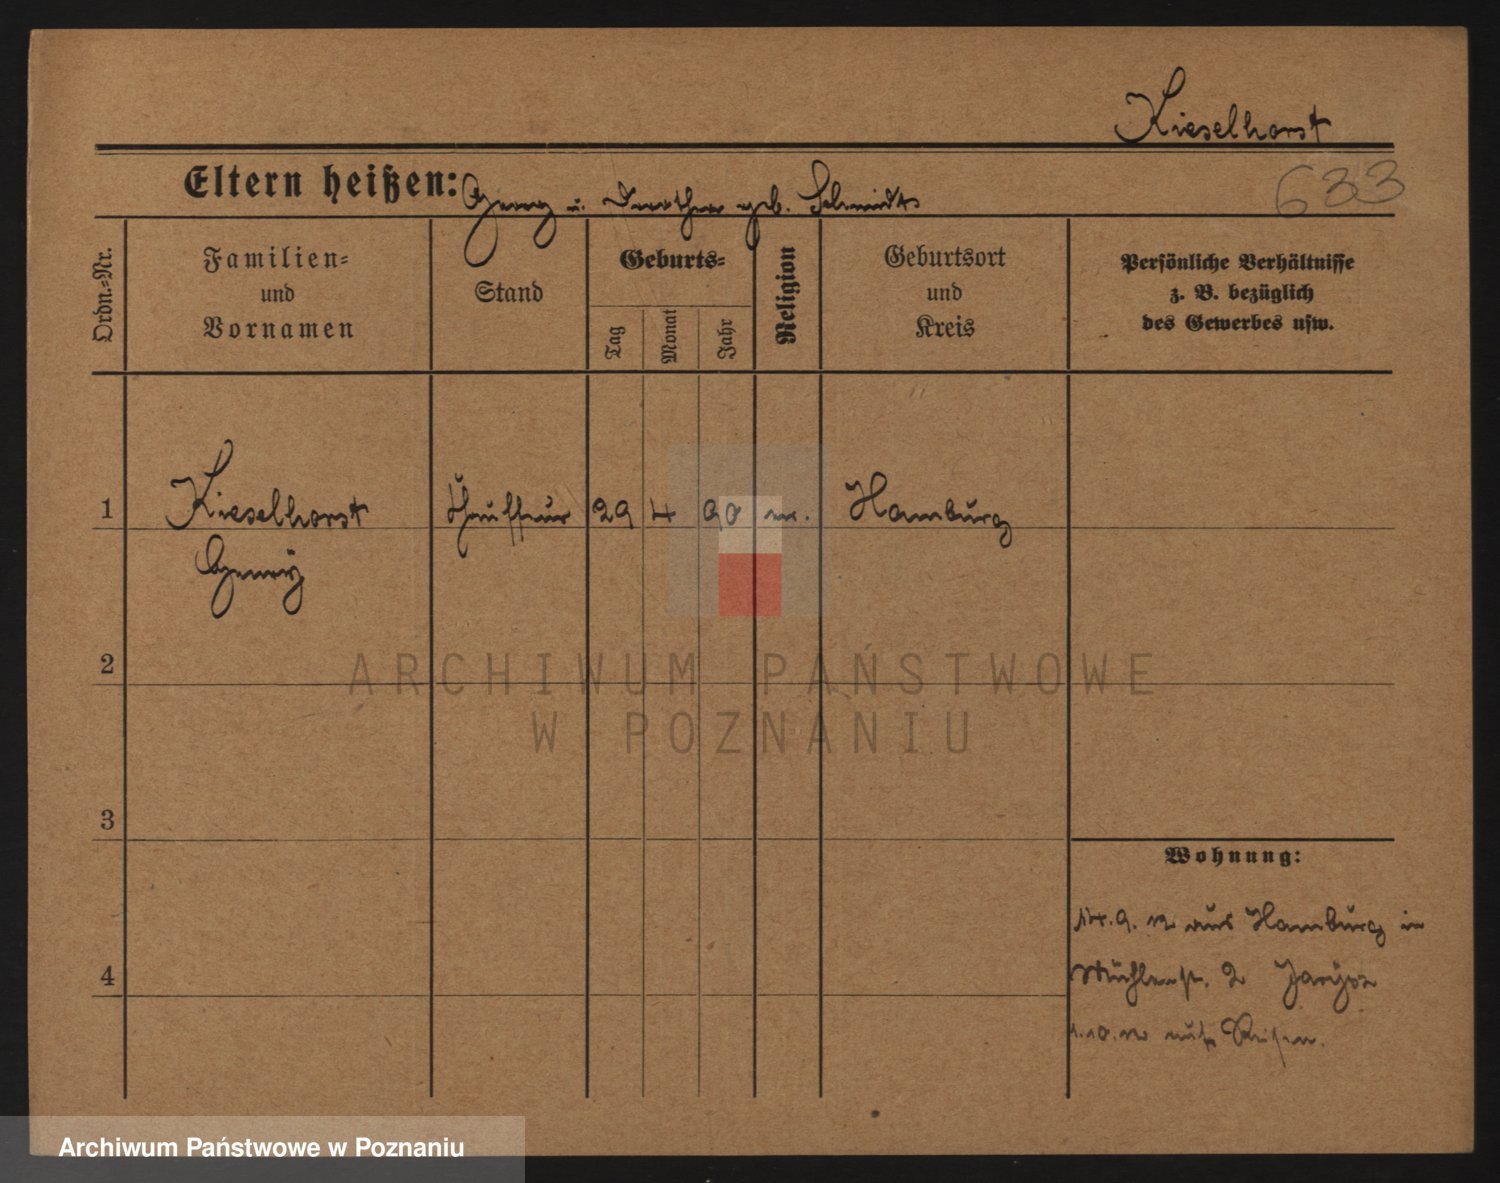 Kieselhorst
Eltern heißen: Georg u. Dorothea geb. Schmidt
633
Ordn.-Nr.
Familien-
und
Vornamen
Stand
Geburts-
Tag
Monat
Jahr
Religion
Geburtsort
und
Kreis
Persönliche Verhältnisse
z. B. bezüglich
des Gewerbes usw.
1 Kieselhorst Chauffeur 29 4 90 Hamburg
2
3
4
Wohnung:
9. 12 aus Hamburg in
Mühlenstr. 2
1.10.12 auf Reisen.
ARCHIWUM PAŃSTWOWE
W POZNANIU
Archiwum Państwowe w Poznaniu